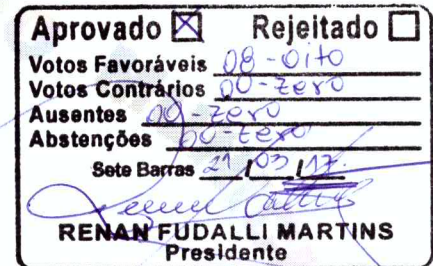 Aprovado ☒ Rejeitado ☐
Votos Favoráveis 08 - oito
Votos Contrários 00 - zero
Ausentes 00 - zero
Abstenções 00 - zero
Sete Barras 21 / 03 / 17.
RENAN FUDALLI MARTINS
Presidente